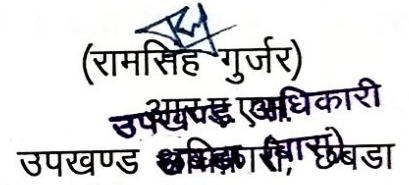 (रामसिंह गुर्जर)
आर.ए.एस.
उपखण्ड अधिकारी
उपखण्ड अधिकारी, छबडा